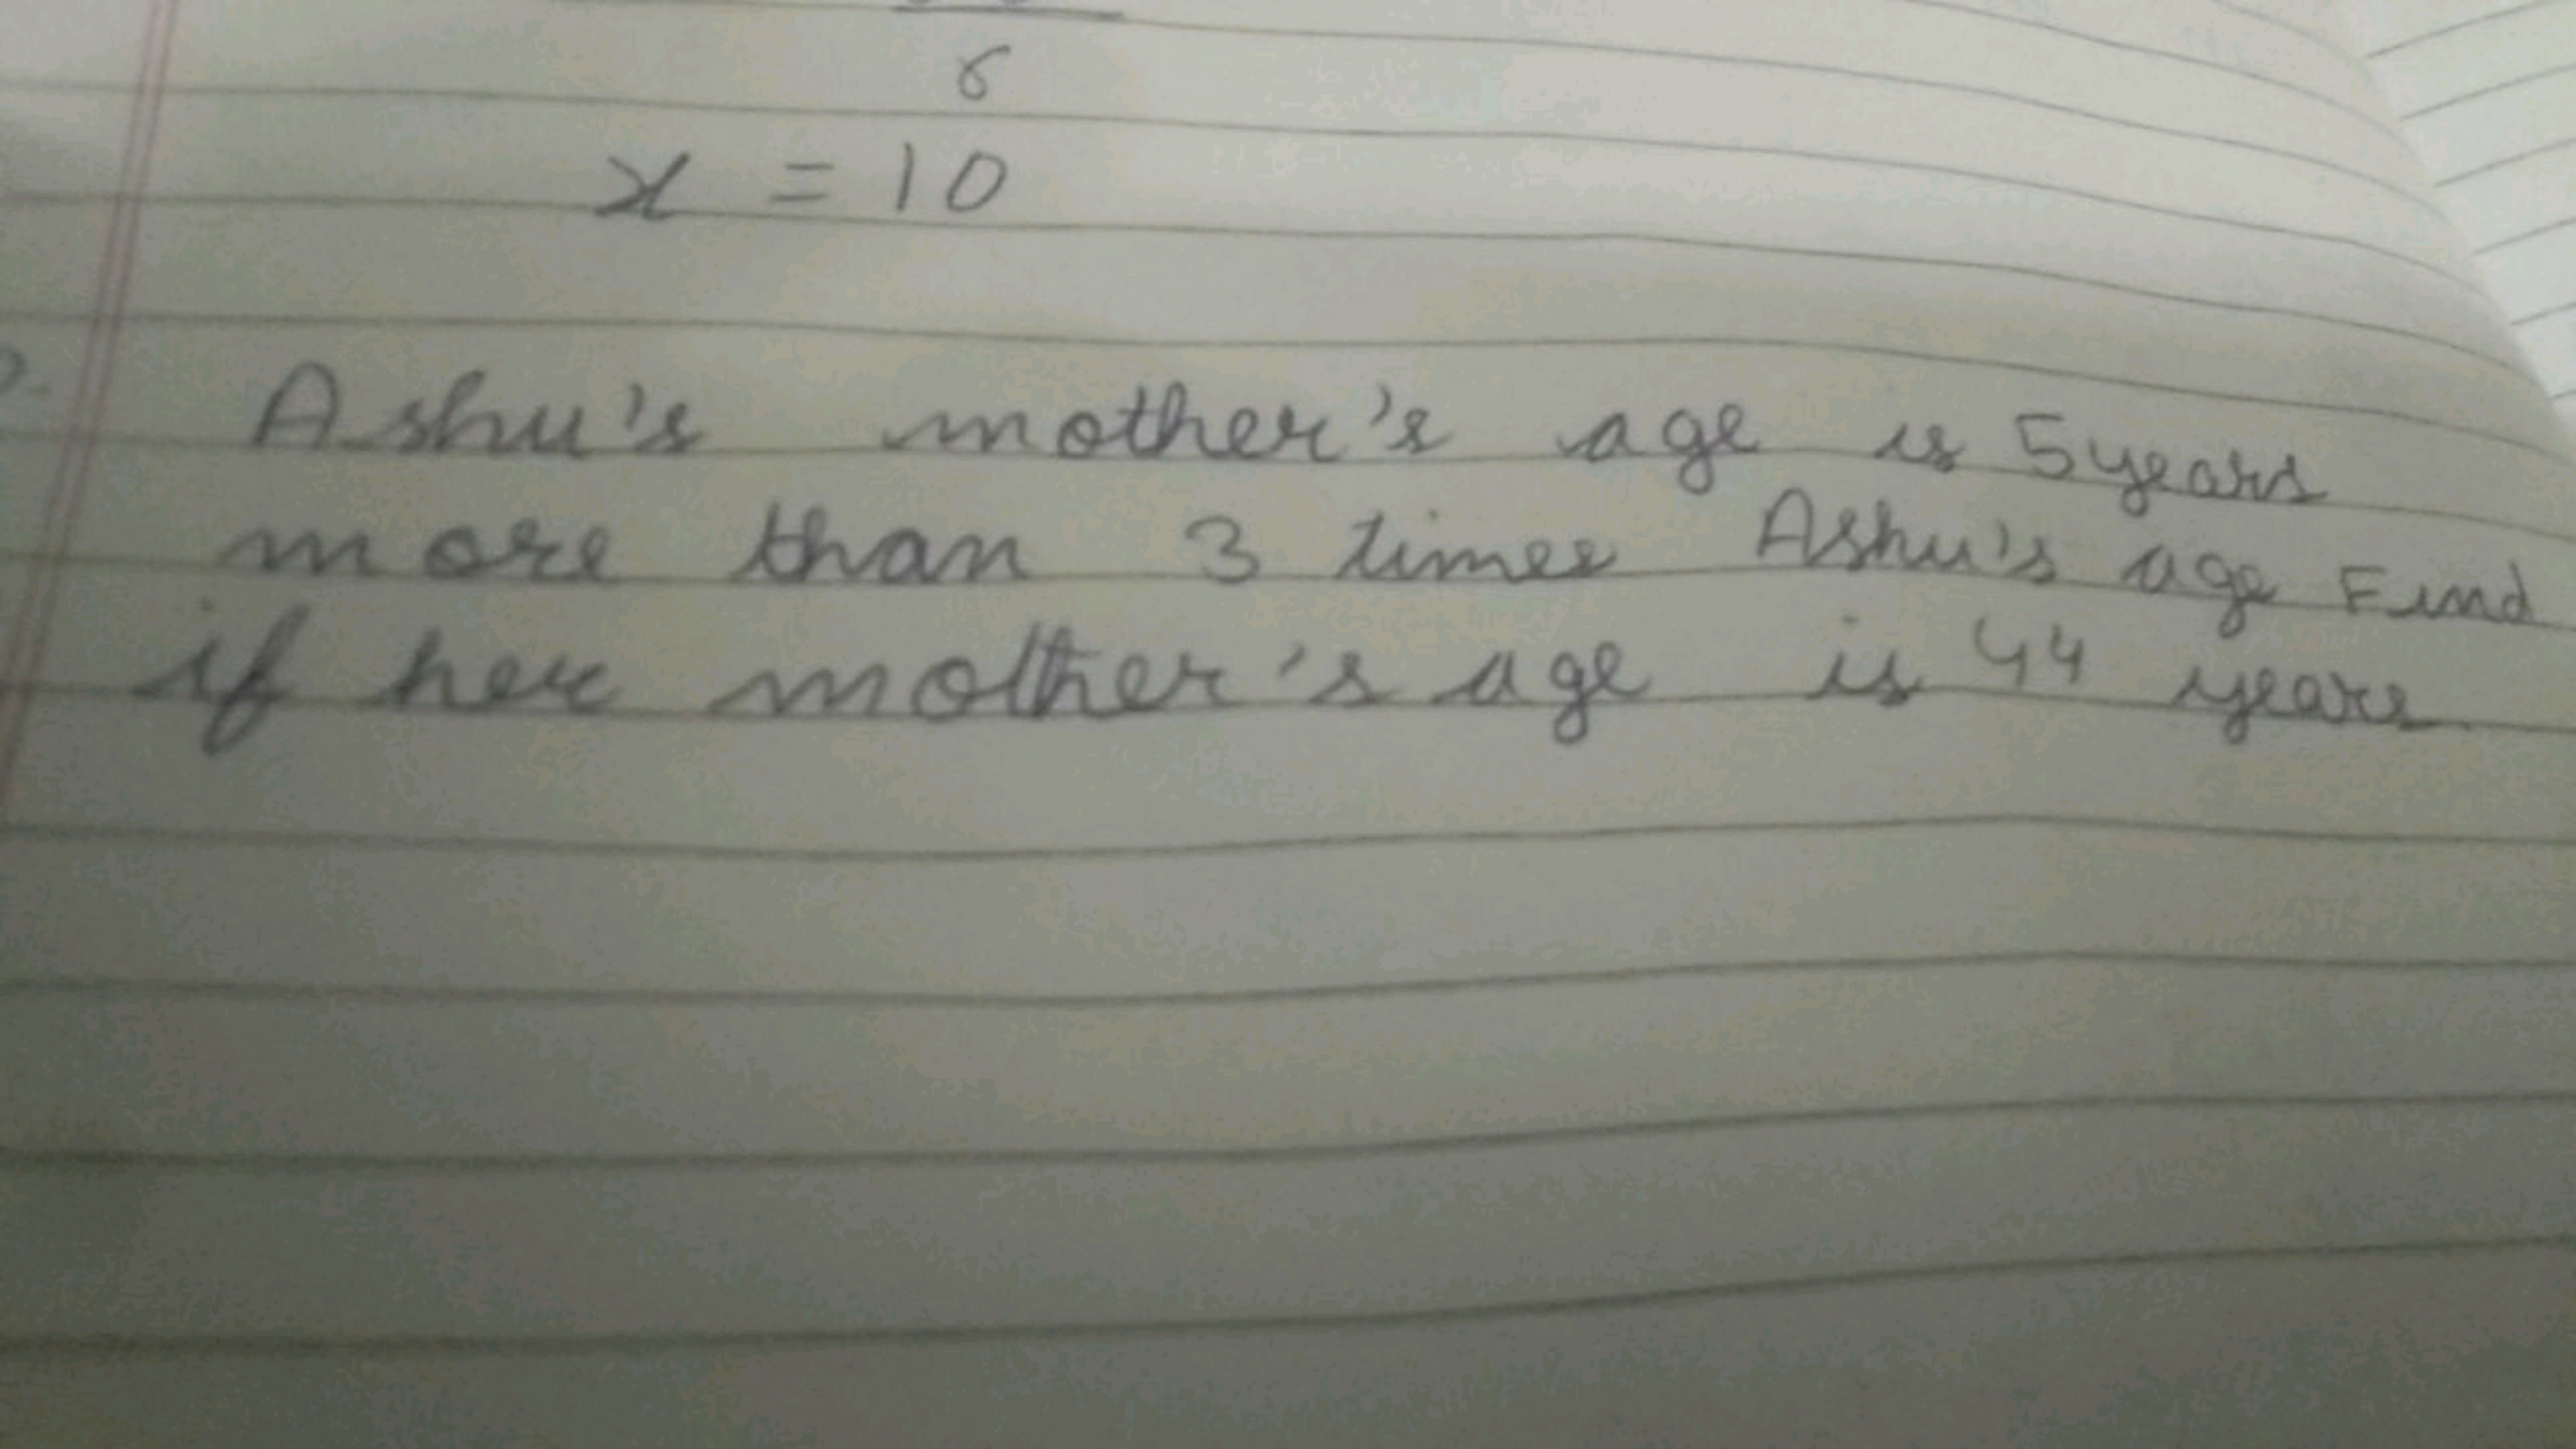 6
x = 10
Ashu's mother's age is 5 years
more than 3 times Ashu's age Find
if her mother's age is 44 years